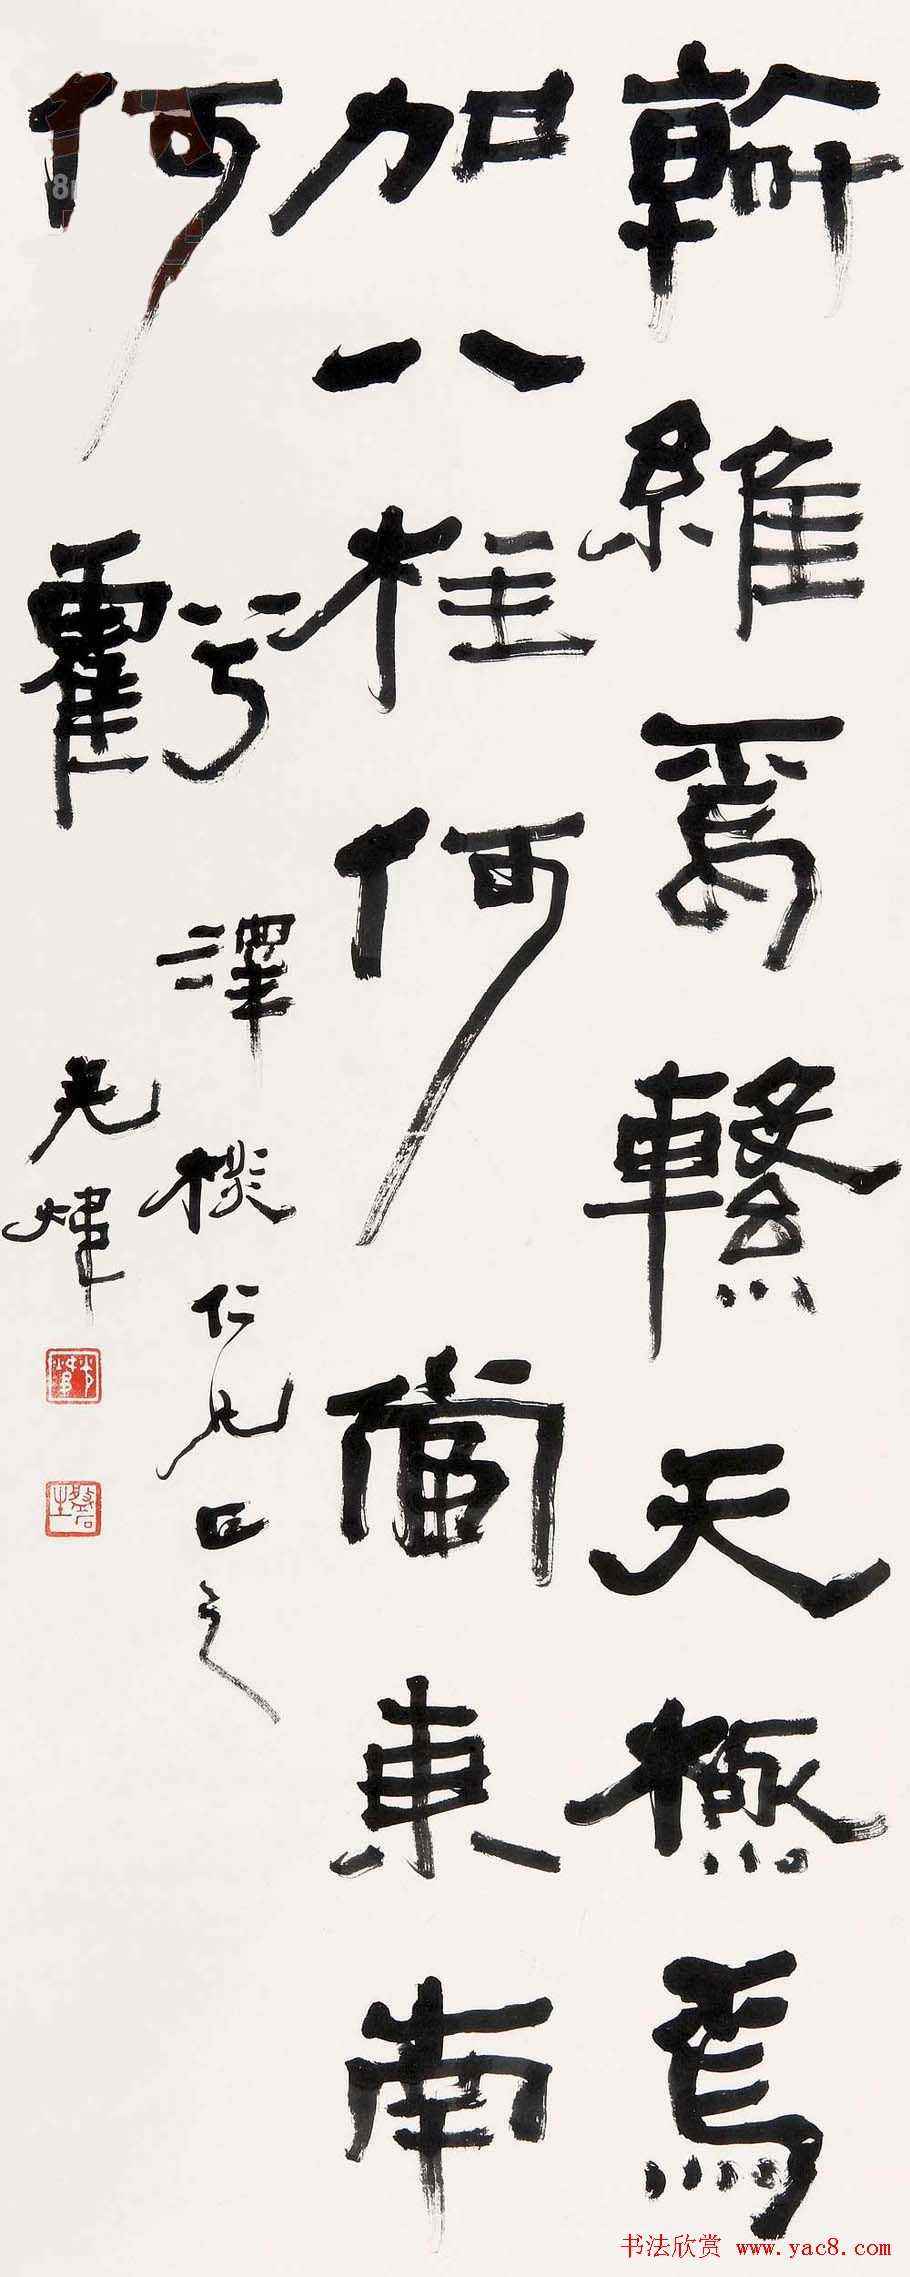 斡維焉繫天極焉
加八柱何當東南
何虧
澤仁兄正之
光煒
书法欣赏 www.yac8.com